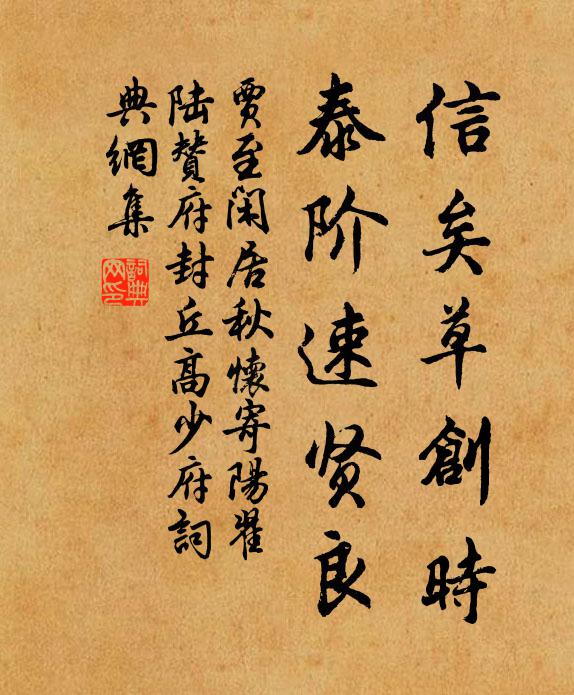 信矣草創時
泰阶速贤良
賈至閑居秋懷寄陽翟
陆贊府封丘高少府詞
典網集
詞典网印